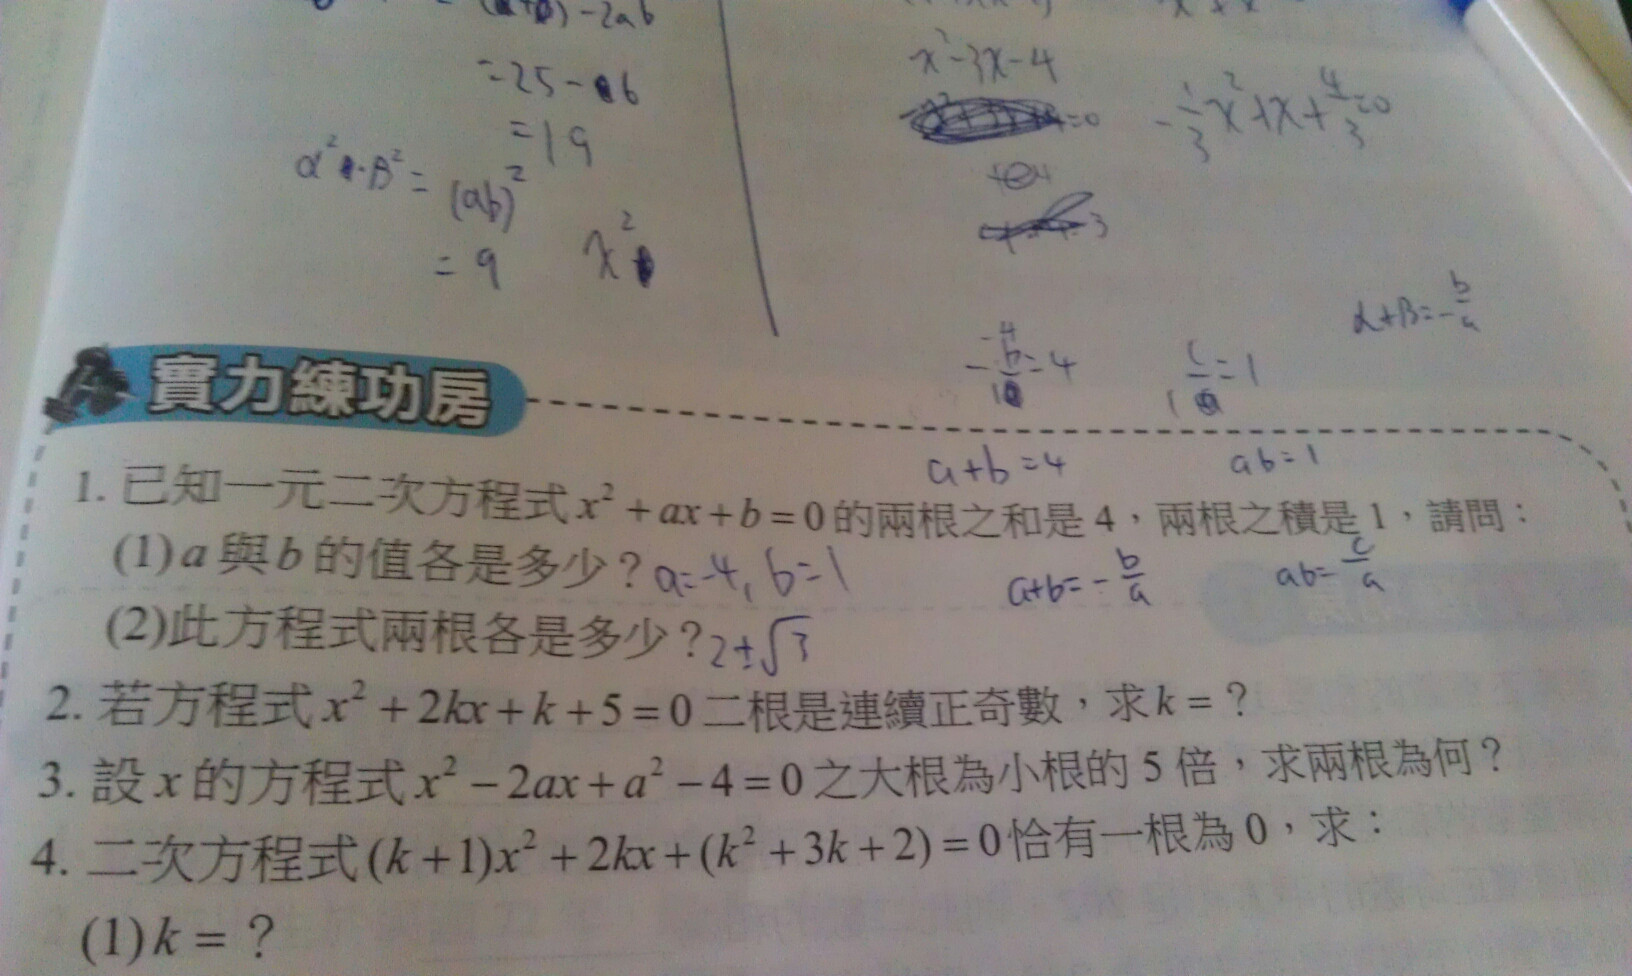 -2ab
=25-6
=19
α²·β²=(ab)²
=9
x²
x²-3x-4
=0
-1/3x²+x+4/3=0
3
α+β=-b/a
-b/1=4
c/1=1
-4
a+b=4
ab=1
實力練功房
1. 已知一元二次方程式x²+ax+b=0的兩根之和是4，兩根之積是1，請問：
(1)a與b的值各是多少？a=-4, b=1
a+b=-b/a
ab=c/a
(2)此方程式兩根各是多少？2±√3
2. 若方程式x²+2kx+k+5=0二根是連續正奇數，求k=？
3. 設x的方程式x²-2ax+a²-4=0之大根為小根的5倍，求兩根為何？
4. 二次方程式(k+1)x²+2kx+(k²+3k+2)=0恰有一根為0，求：
(1)k=？